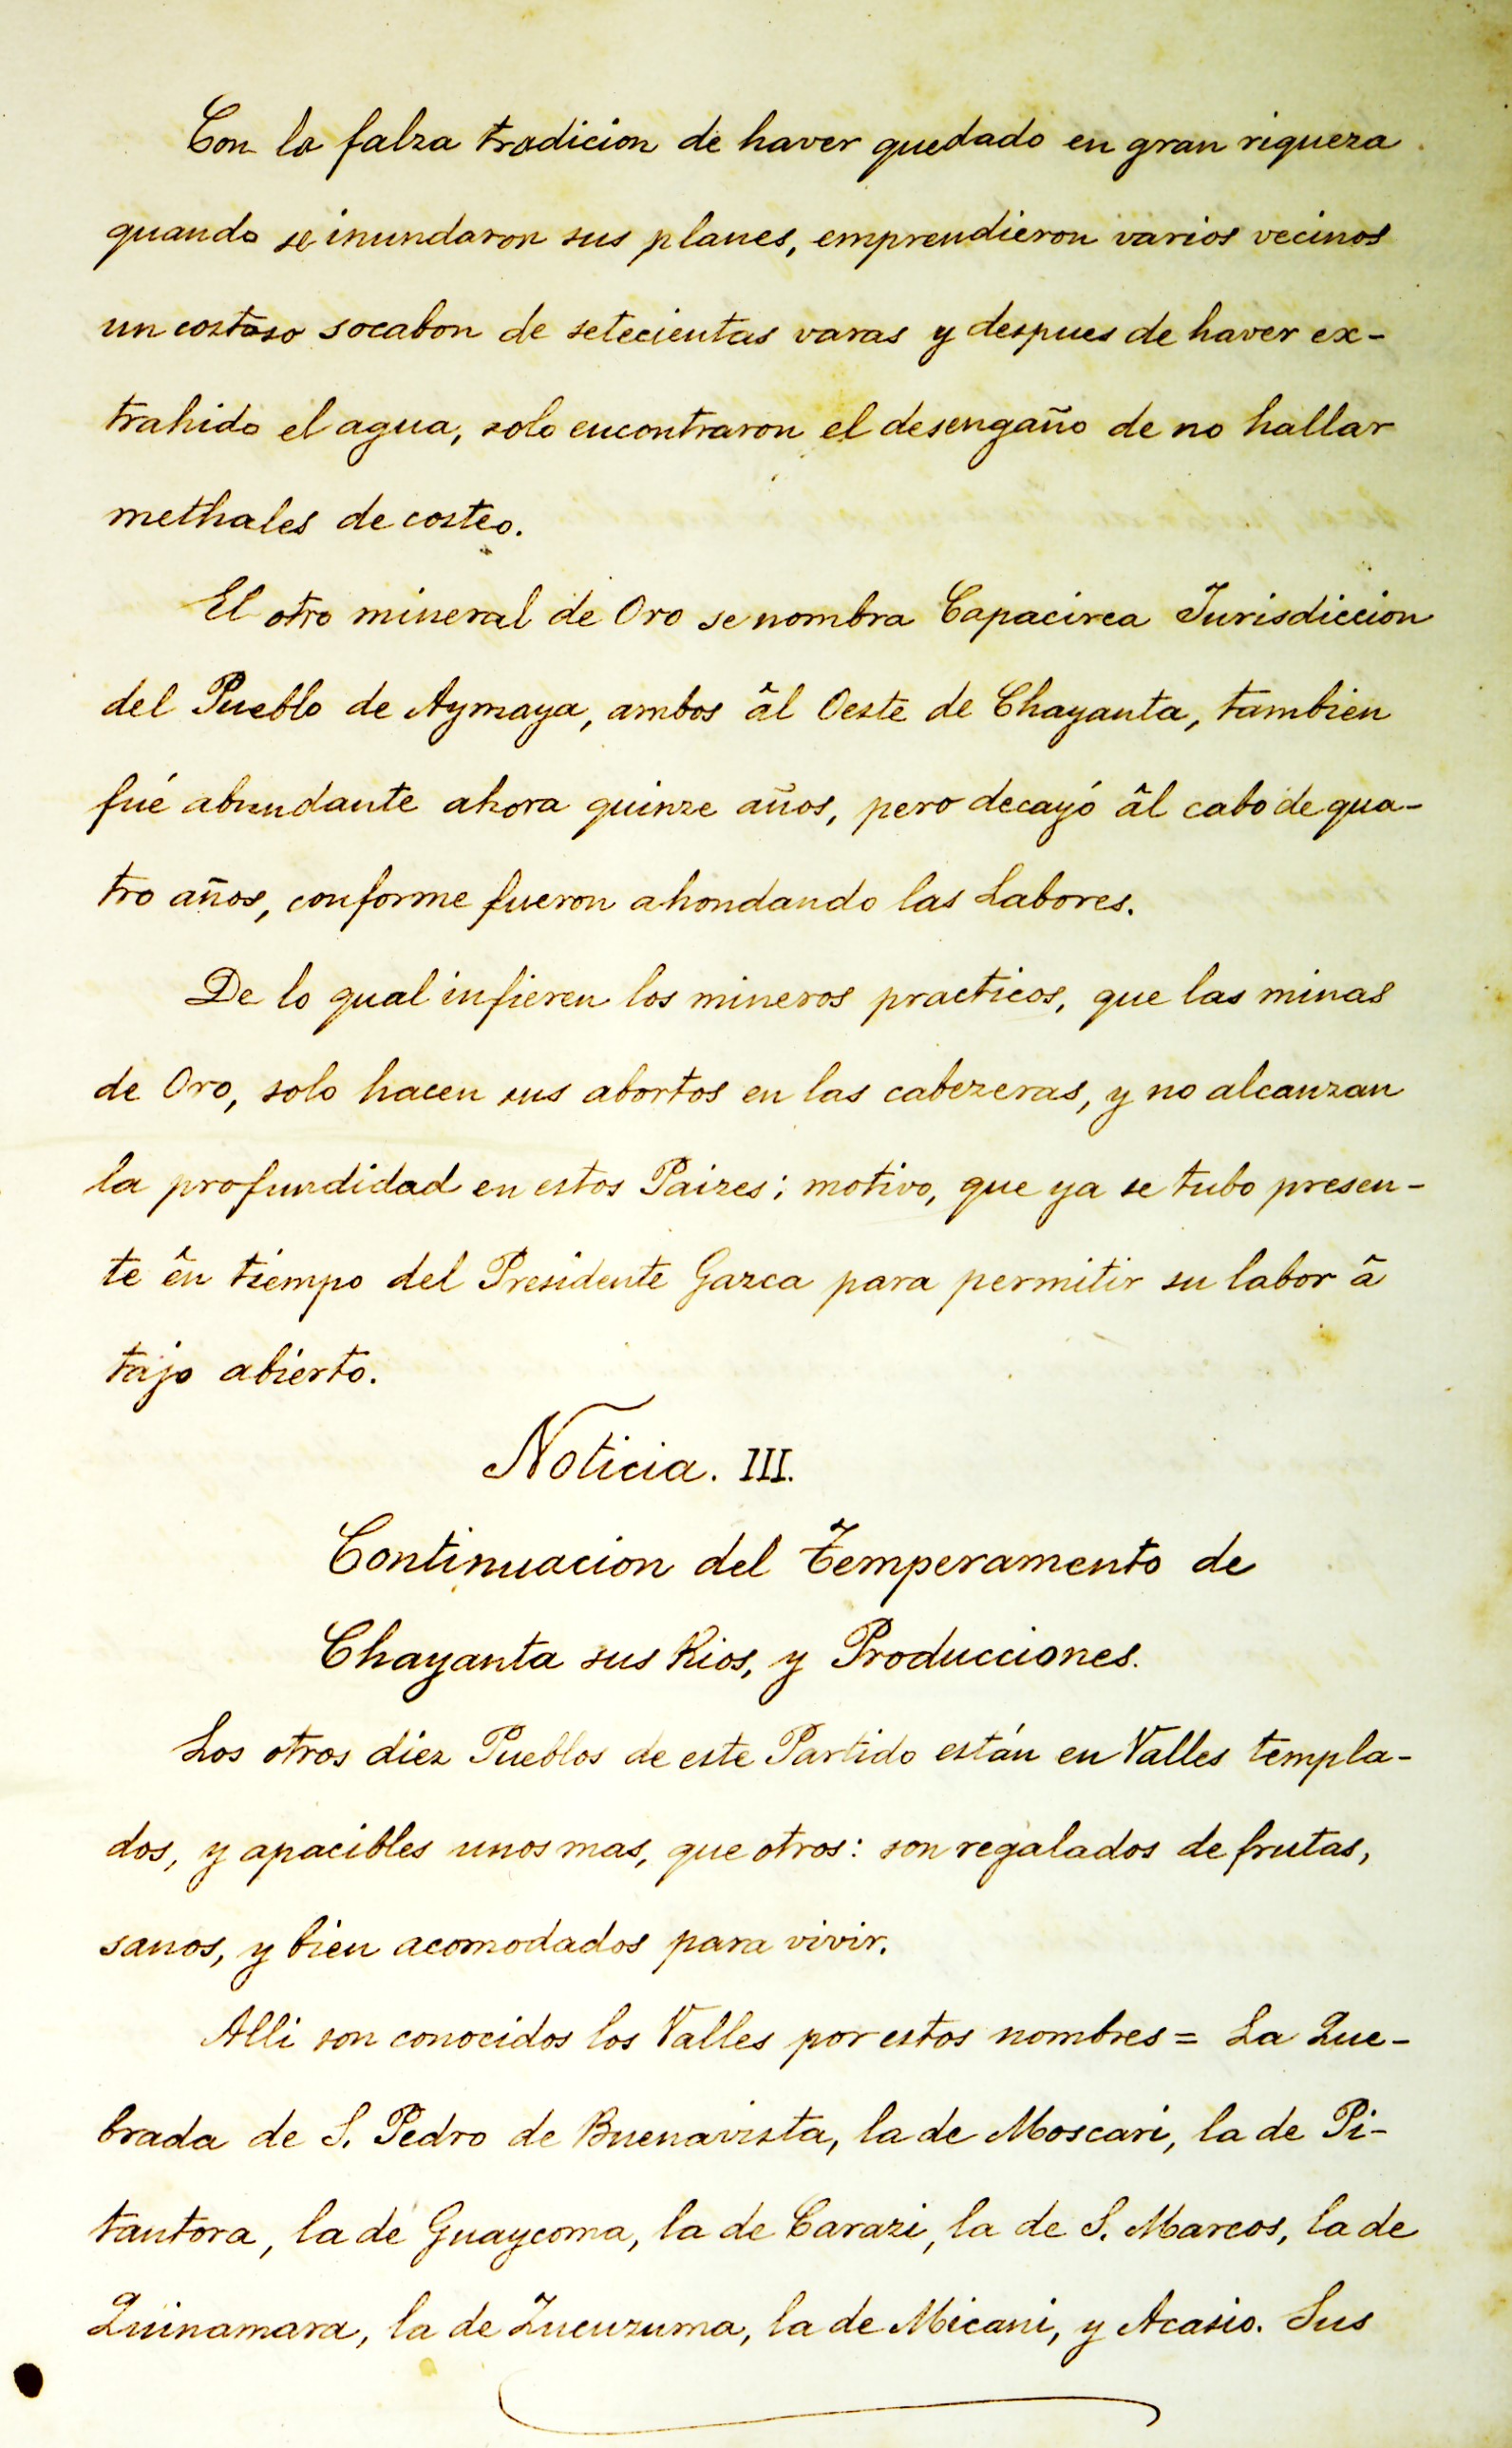 Con la falza tradicion de haver quedado en gran riqueza
quando se inundaron sus planes, emprendieron varios vecinos
un costoso socabon de setecientas varas y despues de haver ex-
trahido el agua, solo encontraron el desengaño de no hallar
methales de costeo.
El otro mineral de Oro se nombra Capacirca Jurisdiccion
del Pueblo de Aymaya, ambos âl Oeste de Chayanta, tambien
fué abundante ahora quinze años, pero decayó âl cabo de qua-
tro años, conforme fueron ahondando las Labores.
De lo qual infieren los mineros practicos, que las minas
de Oro, solo hacen sus abortos en las cabezeras, y no alcanzan
la profundidad en estos Paizes; motivo, que ya se tubo presen-
te ên tiempo del Presidente Gazca para permitir su labor â
tajo abierto.
Noticia. III.
Continuacion del Temperamento de
Chayanta sus Rios, y Producciones.
Los otros diez Pueblos de este Partido están en Valles templa-
dos, y apacibles unos mas, que otros: son regalados de frutas,
sanos, y bien acomodados para vivir.
Alli son conocidos los Valles por estos nombres = La Que-
brada de S. Pedro de Buenavista, la de Moscari, la de Pi-
tantora, la de Guaycoma, la de Carazi, la de S. Marcos, la de
Quinamara, la de Zucuzuma, la de Micani, y Acasio. Sus